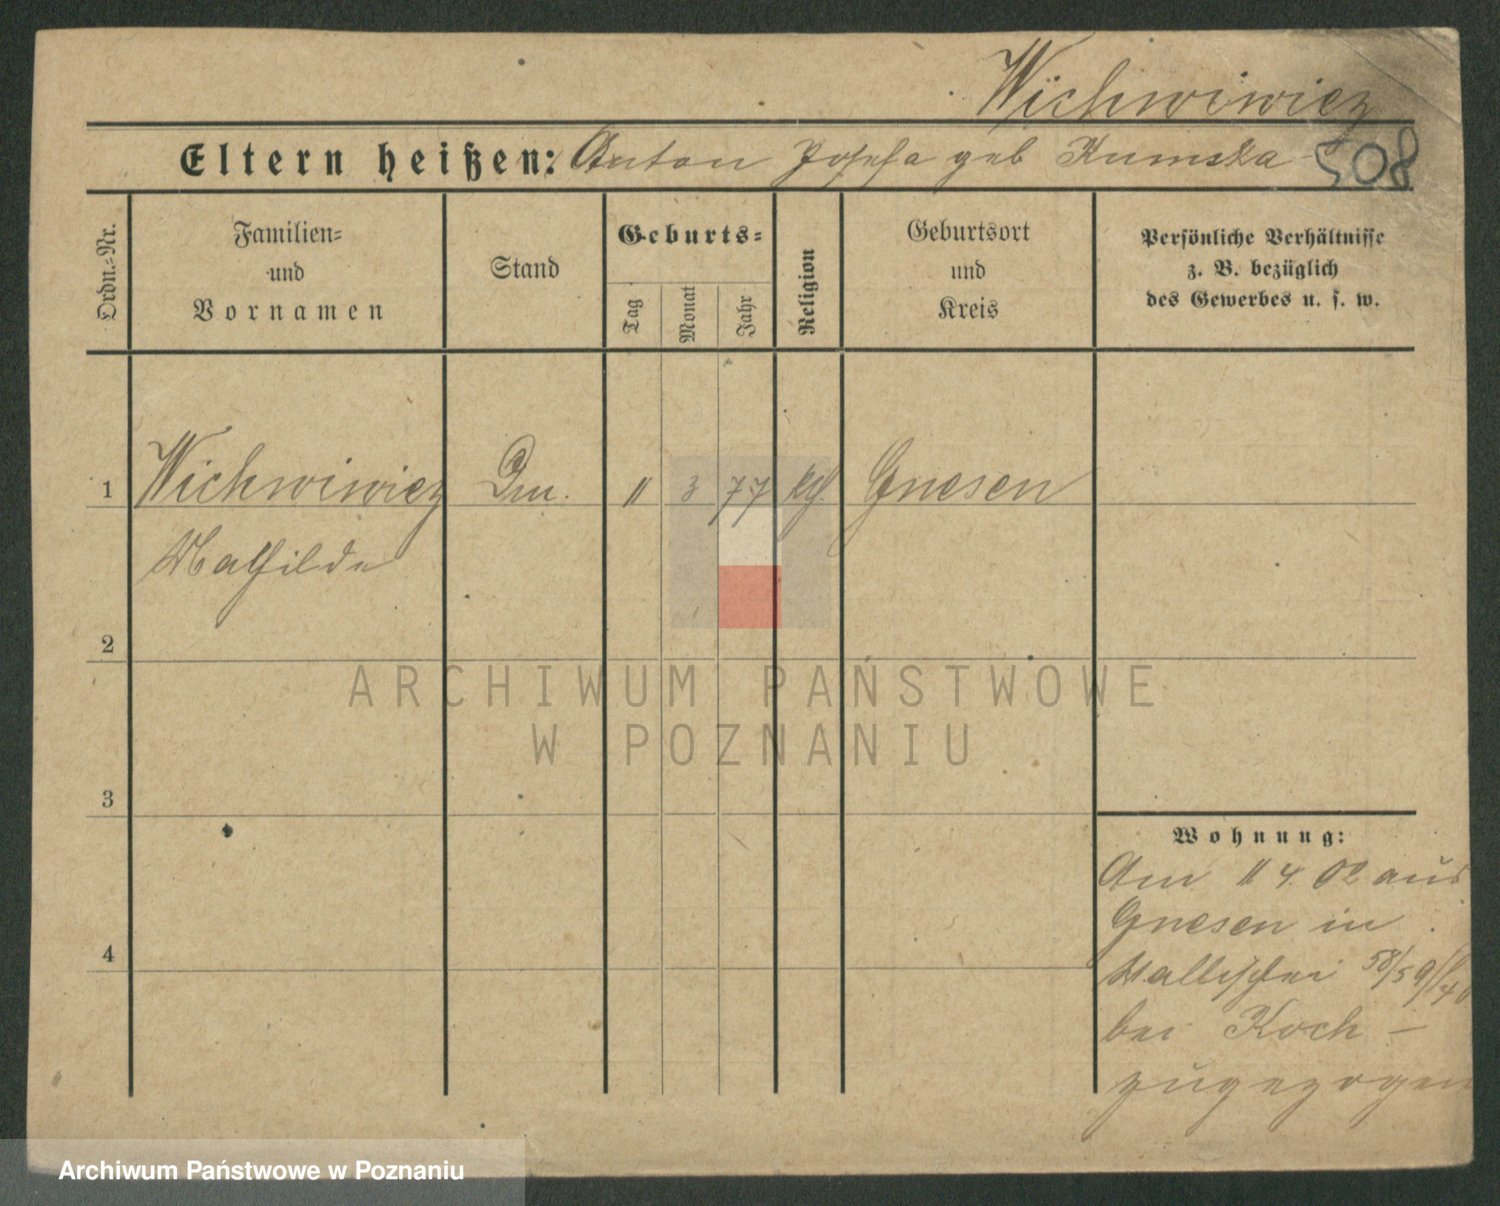 Wichwiwicz
Eltern heißen: Anton Josefa geb Kumska
508
Ordn.-Nr.
Familien-
und
Vornamen
Stand
Geburts-
Tag
Monat
Jahr
Religion
Geburtsort
und
Kreis
Persönliche Verhältnisse
z. B. bezüglich
des Gewerbes u. s. w.
1 Wichwiwicz 11 3 77 kth Gnesen
Mathilde
2
3
4
Wohnung:
Am 11 4. 02 aus
Gnesen in
Wallischei 58/59
bei Koch –
zugezogen
ARCHIWUM PAŃSTWOWE
W POZNANIU
Archiwum Państwowe w Poznaniu